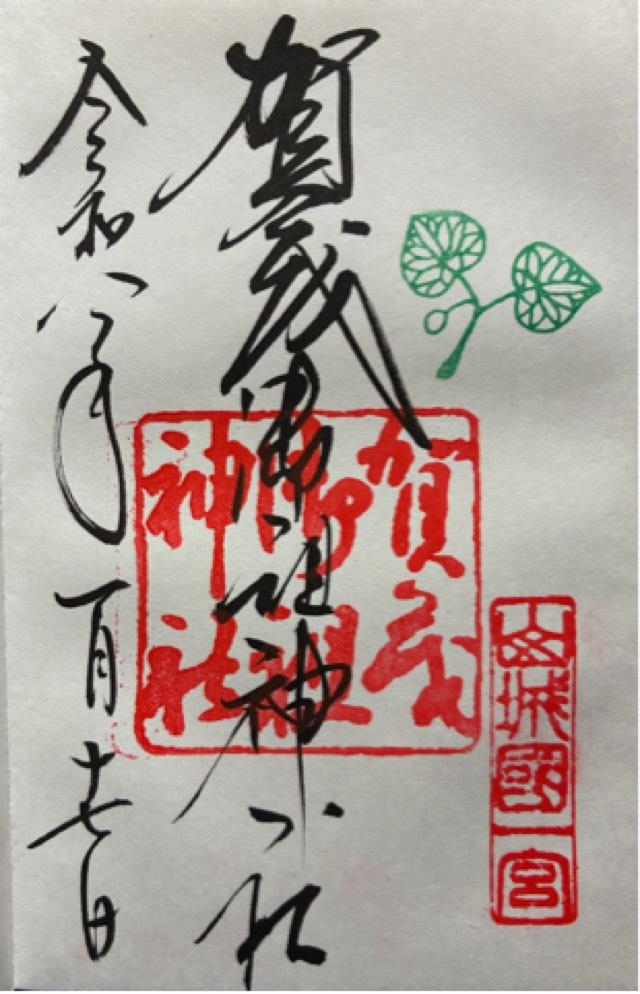 山城國一宮
賀茂
御祖
神社
賀茂御祖神社
令和八年一月十七日